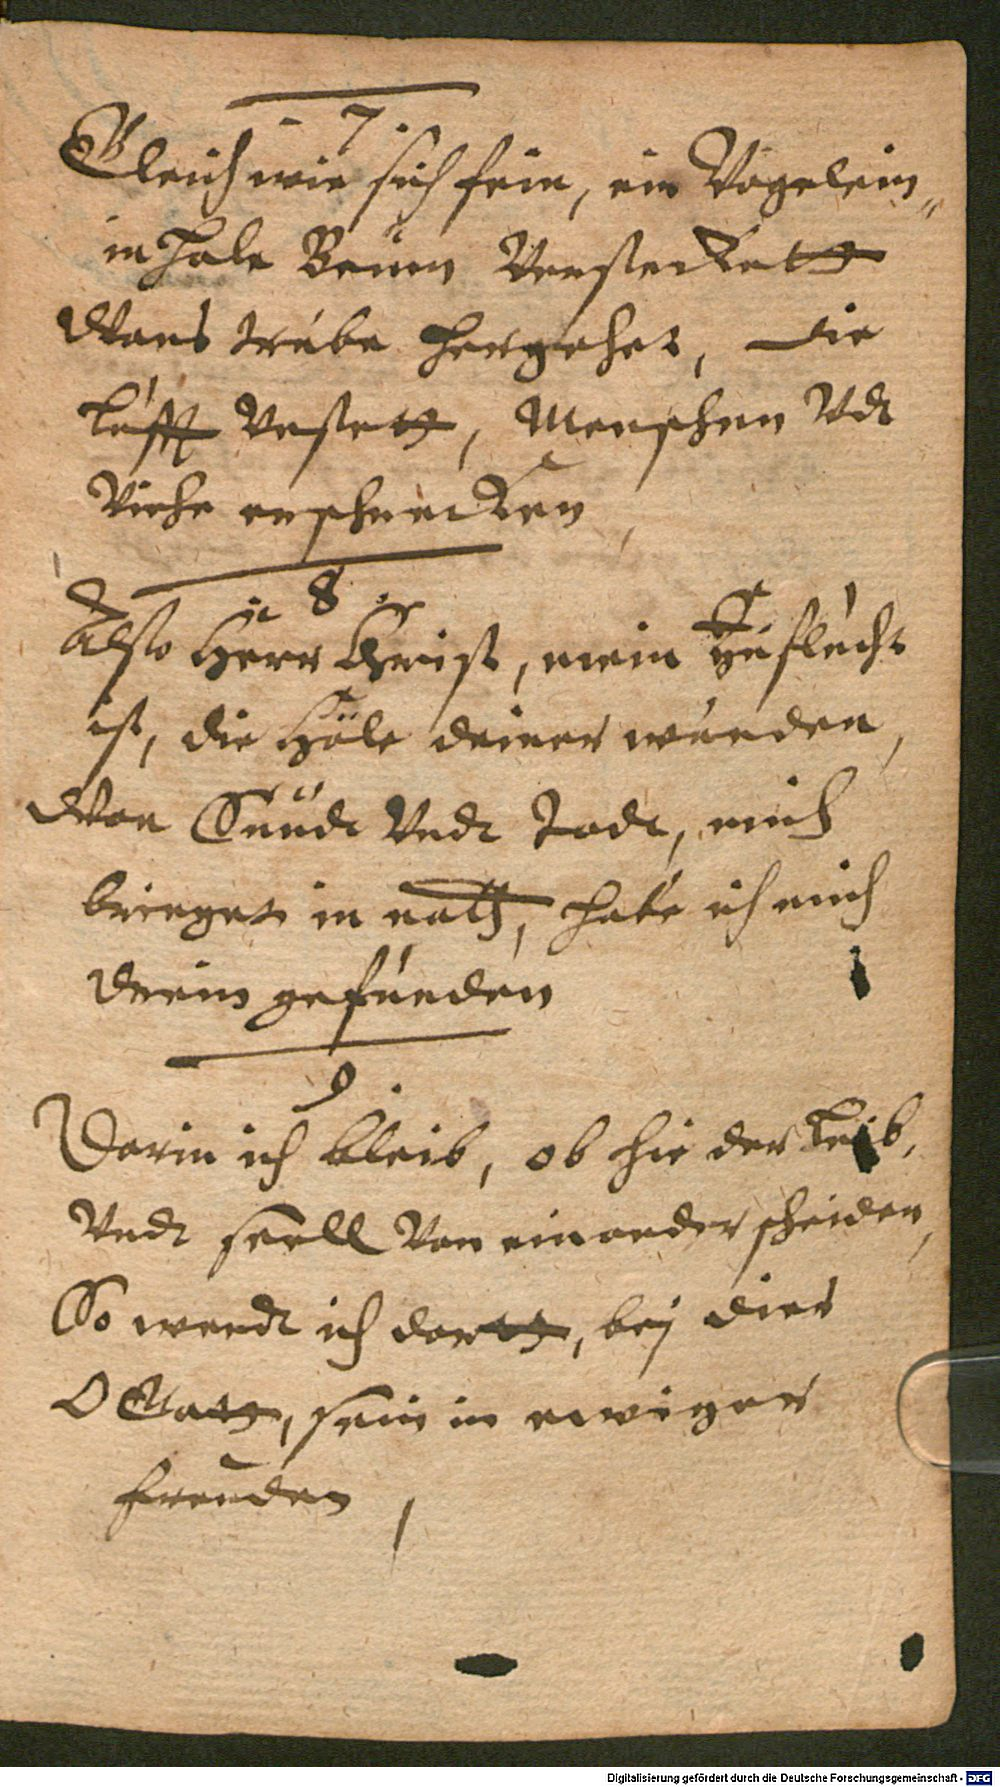 7.
Gleich wie sich fein, ein Vogelein„
in hole Beum Verstecket
Wans trübe hergehet, die
lufft Vnstett, Menschen Vdt
Viehe erschrecken
8.
Also Herr Christ, mein Zuflucht
ist, die Höle deiner wunden,
Wan Sündt Vndt Todt, mich
bringet in noth, habe ich mich
drein gefunden
9.
Darin ich bleib, ob hie der Leib,
Vndt seell Von einander scheiden,
So werdt ich dortt, bej dier
O Gott, sein in ewiger
freuden,
Digitalisierung gefördert durch die Deutsche Forschungsgemeinschaft - DFG